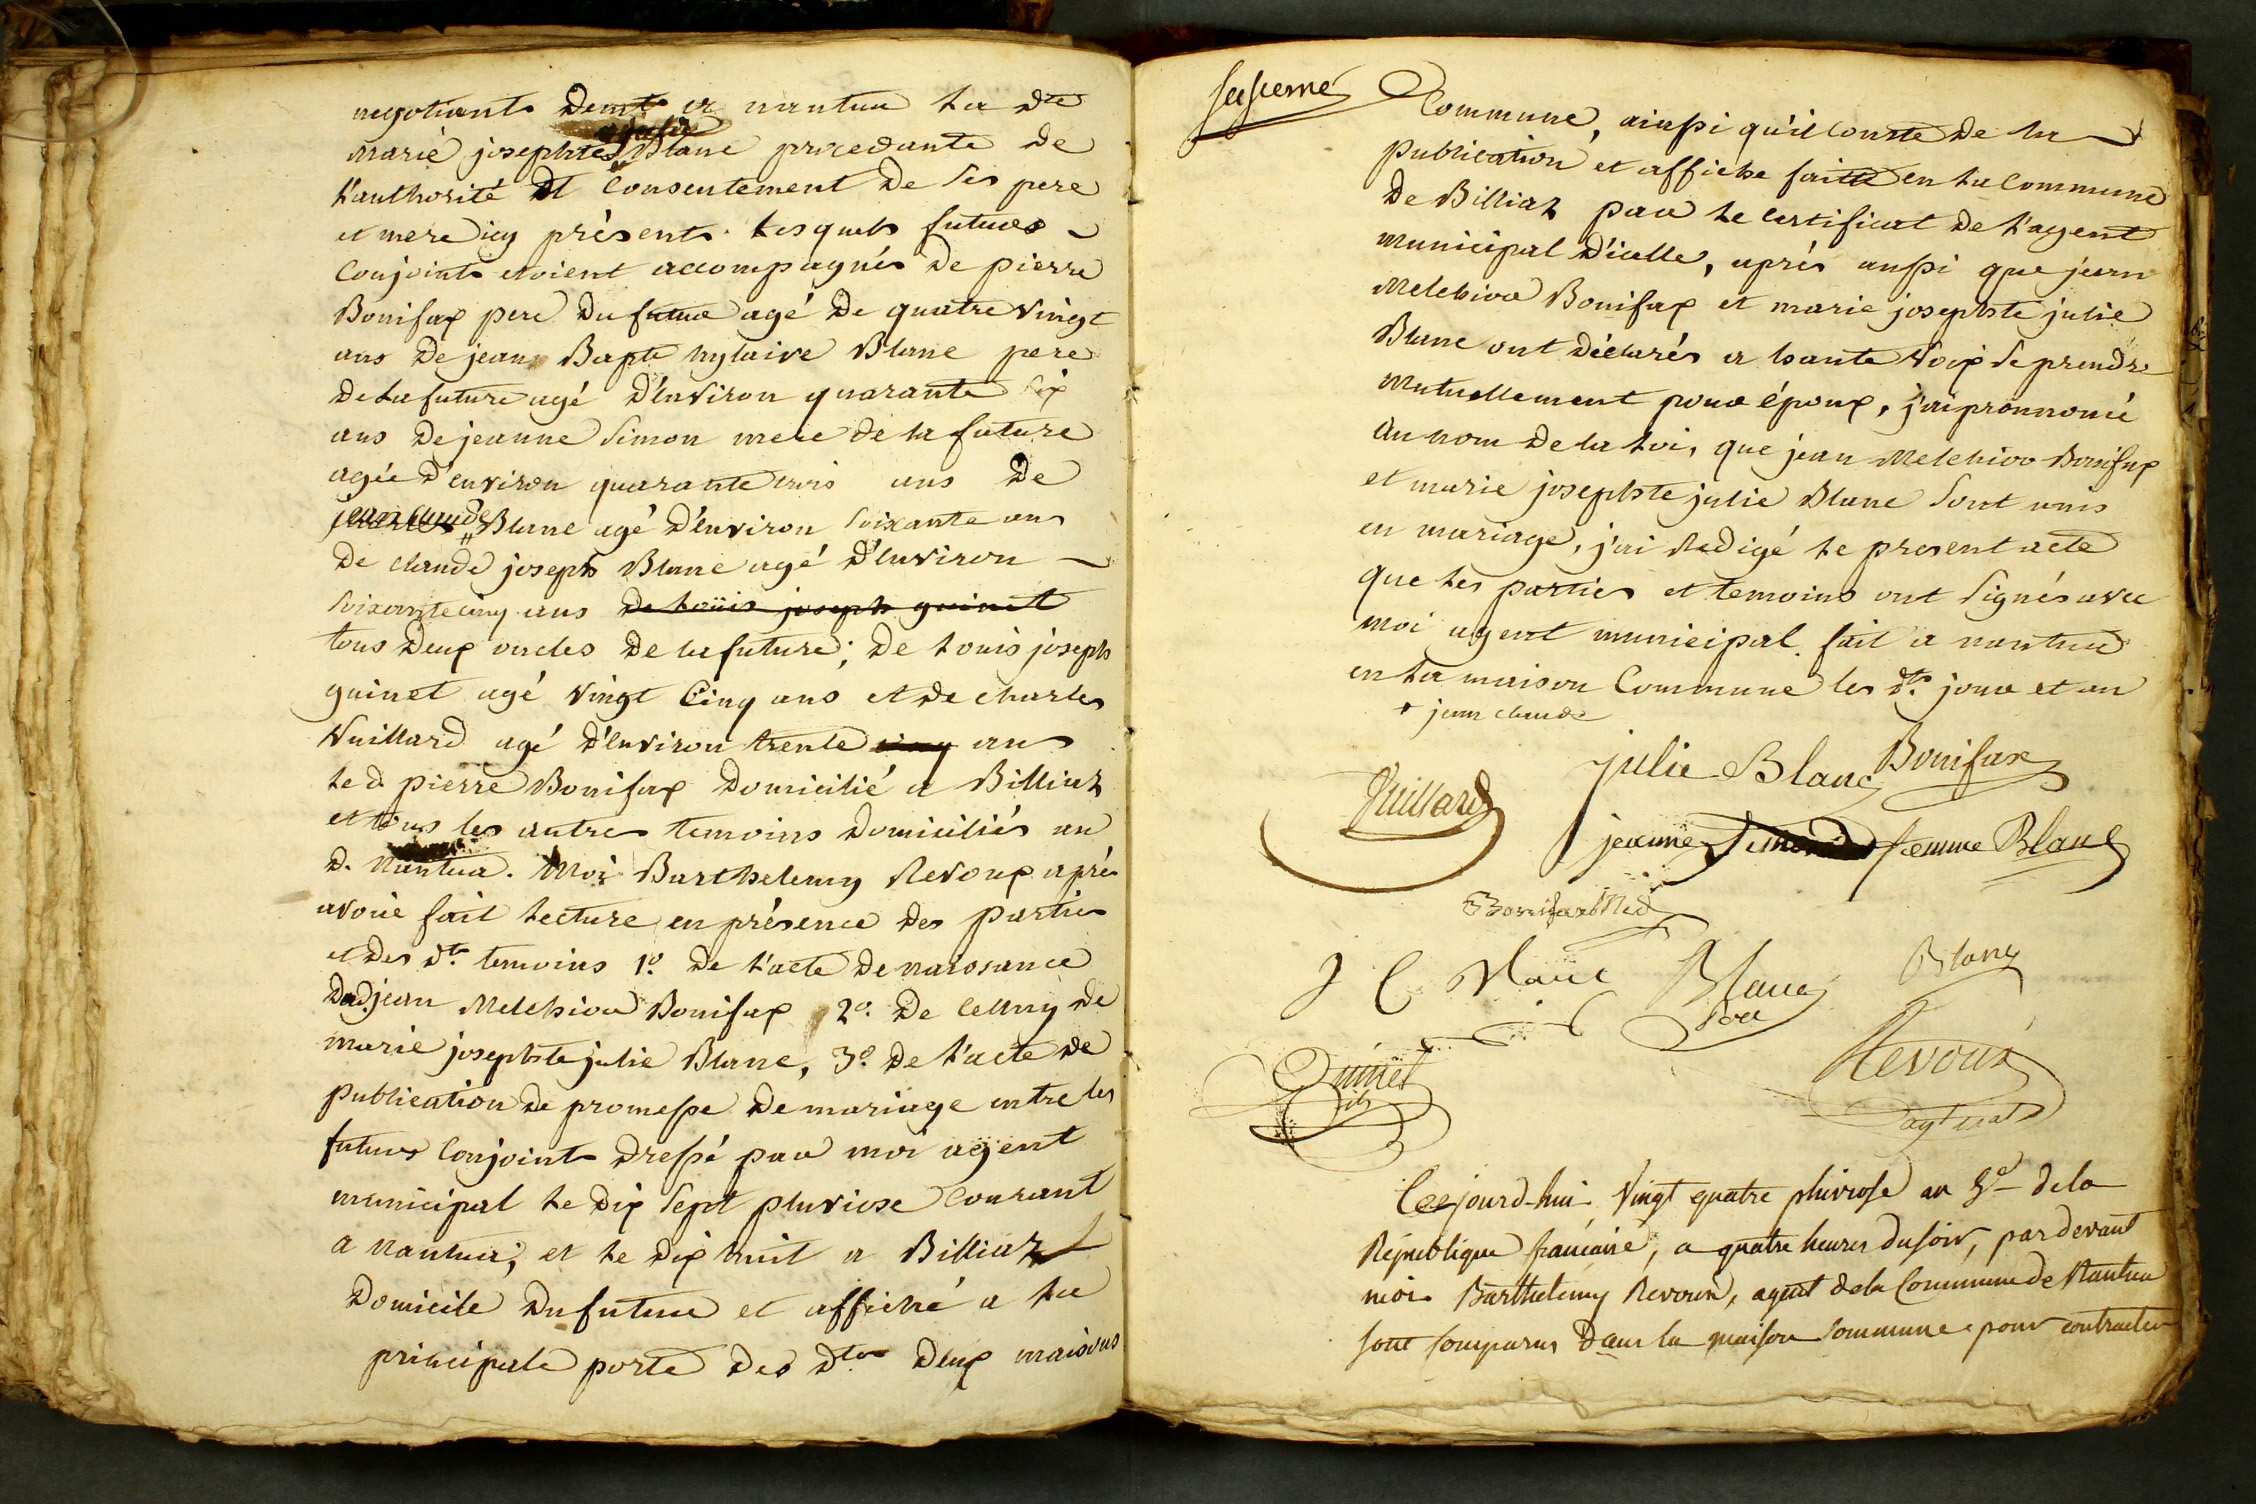 negotiants demt a nantua la dte
julie
marie josephte Blanc procedante de
l'authorité et consentement de ses pere
et mere icy présents. Lesquels futures
Conjoints etoient accompagnés de pierre
Bonifax pere du futur agé de quatre vingt
ans de jean Bapte hylaire Blanc pere
de la future agé d'environ quarante six
ans de jeanne Simon mere de la future
agée d'environ quarante trois ans de
jean claude Blanc agé d'environ soixante ans
de claude joseph Blanc agé d'environ
soixante cinq ans de loüis joseph guinet
tous deux oncles de la future; de Louis joseph
guinet agé vingt Cinq ans et de charles
Vuillard agé d'environ trente cinq ans
le d pierre Bonifax domicilié a Billiaz
et tous les autres temoins domiciliés au
d. Nantua. Moi Barthelemy Revoux après
avoir fait lecture en présence des parties
et des dts temoins 1º. de l'acte de naissance
dud. jean Melchior Bonifax 2º. de celluy de
marie josephte julie Blanc, 3º. de l'acte de
publication de promesse de mariage entre les
futurs Conjoints dressé par moi agent
municipal le dix sept pluviose Courant
a nantua; et le dix huit a Billiaz
domicile du futur et affiché a la
principale porte des dtes deux maisons
Commune, ainssi qu'il conste de la
publication et affiche faitte en la Commune
de Billiaz par le certificat de l'agent
municipal d'icelle, après aussi que jean
Melchior Bonifax et marie josephte julie
Blanc ont déclarés a haute voix se prendre
mutuellement pour époux, j'ai prononcé
au nom de la loi, que jean Melchior Bonifax
et marie josephte julie Blanc sont unis
en mariage, j'ai redigé le present acte
que les parties et temoins ont signés avec
moi agent municipal. fait a nantua
en la maison Commune les dts jour et an
+ jean claude
julie Blanc Bonifax
Vuillard
jeanne Simond femme Blanc
Bonifax
J C Blanc Blanc Blanc
pere
Guinet
fils
Revoux
agt
Cejourd-hui vingt quatre pluviose an 5e de la
République francaise, a quatre heures du soir, pardevant
moi Barthelemy Revoux, agent de la Commune de Nantua
sont comparus dans la maison commune pour contracter